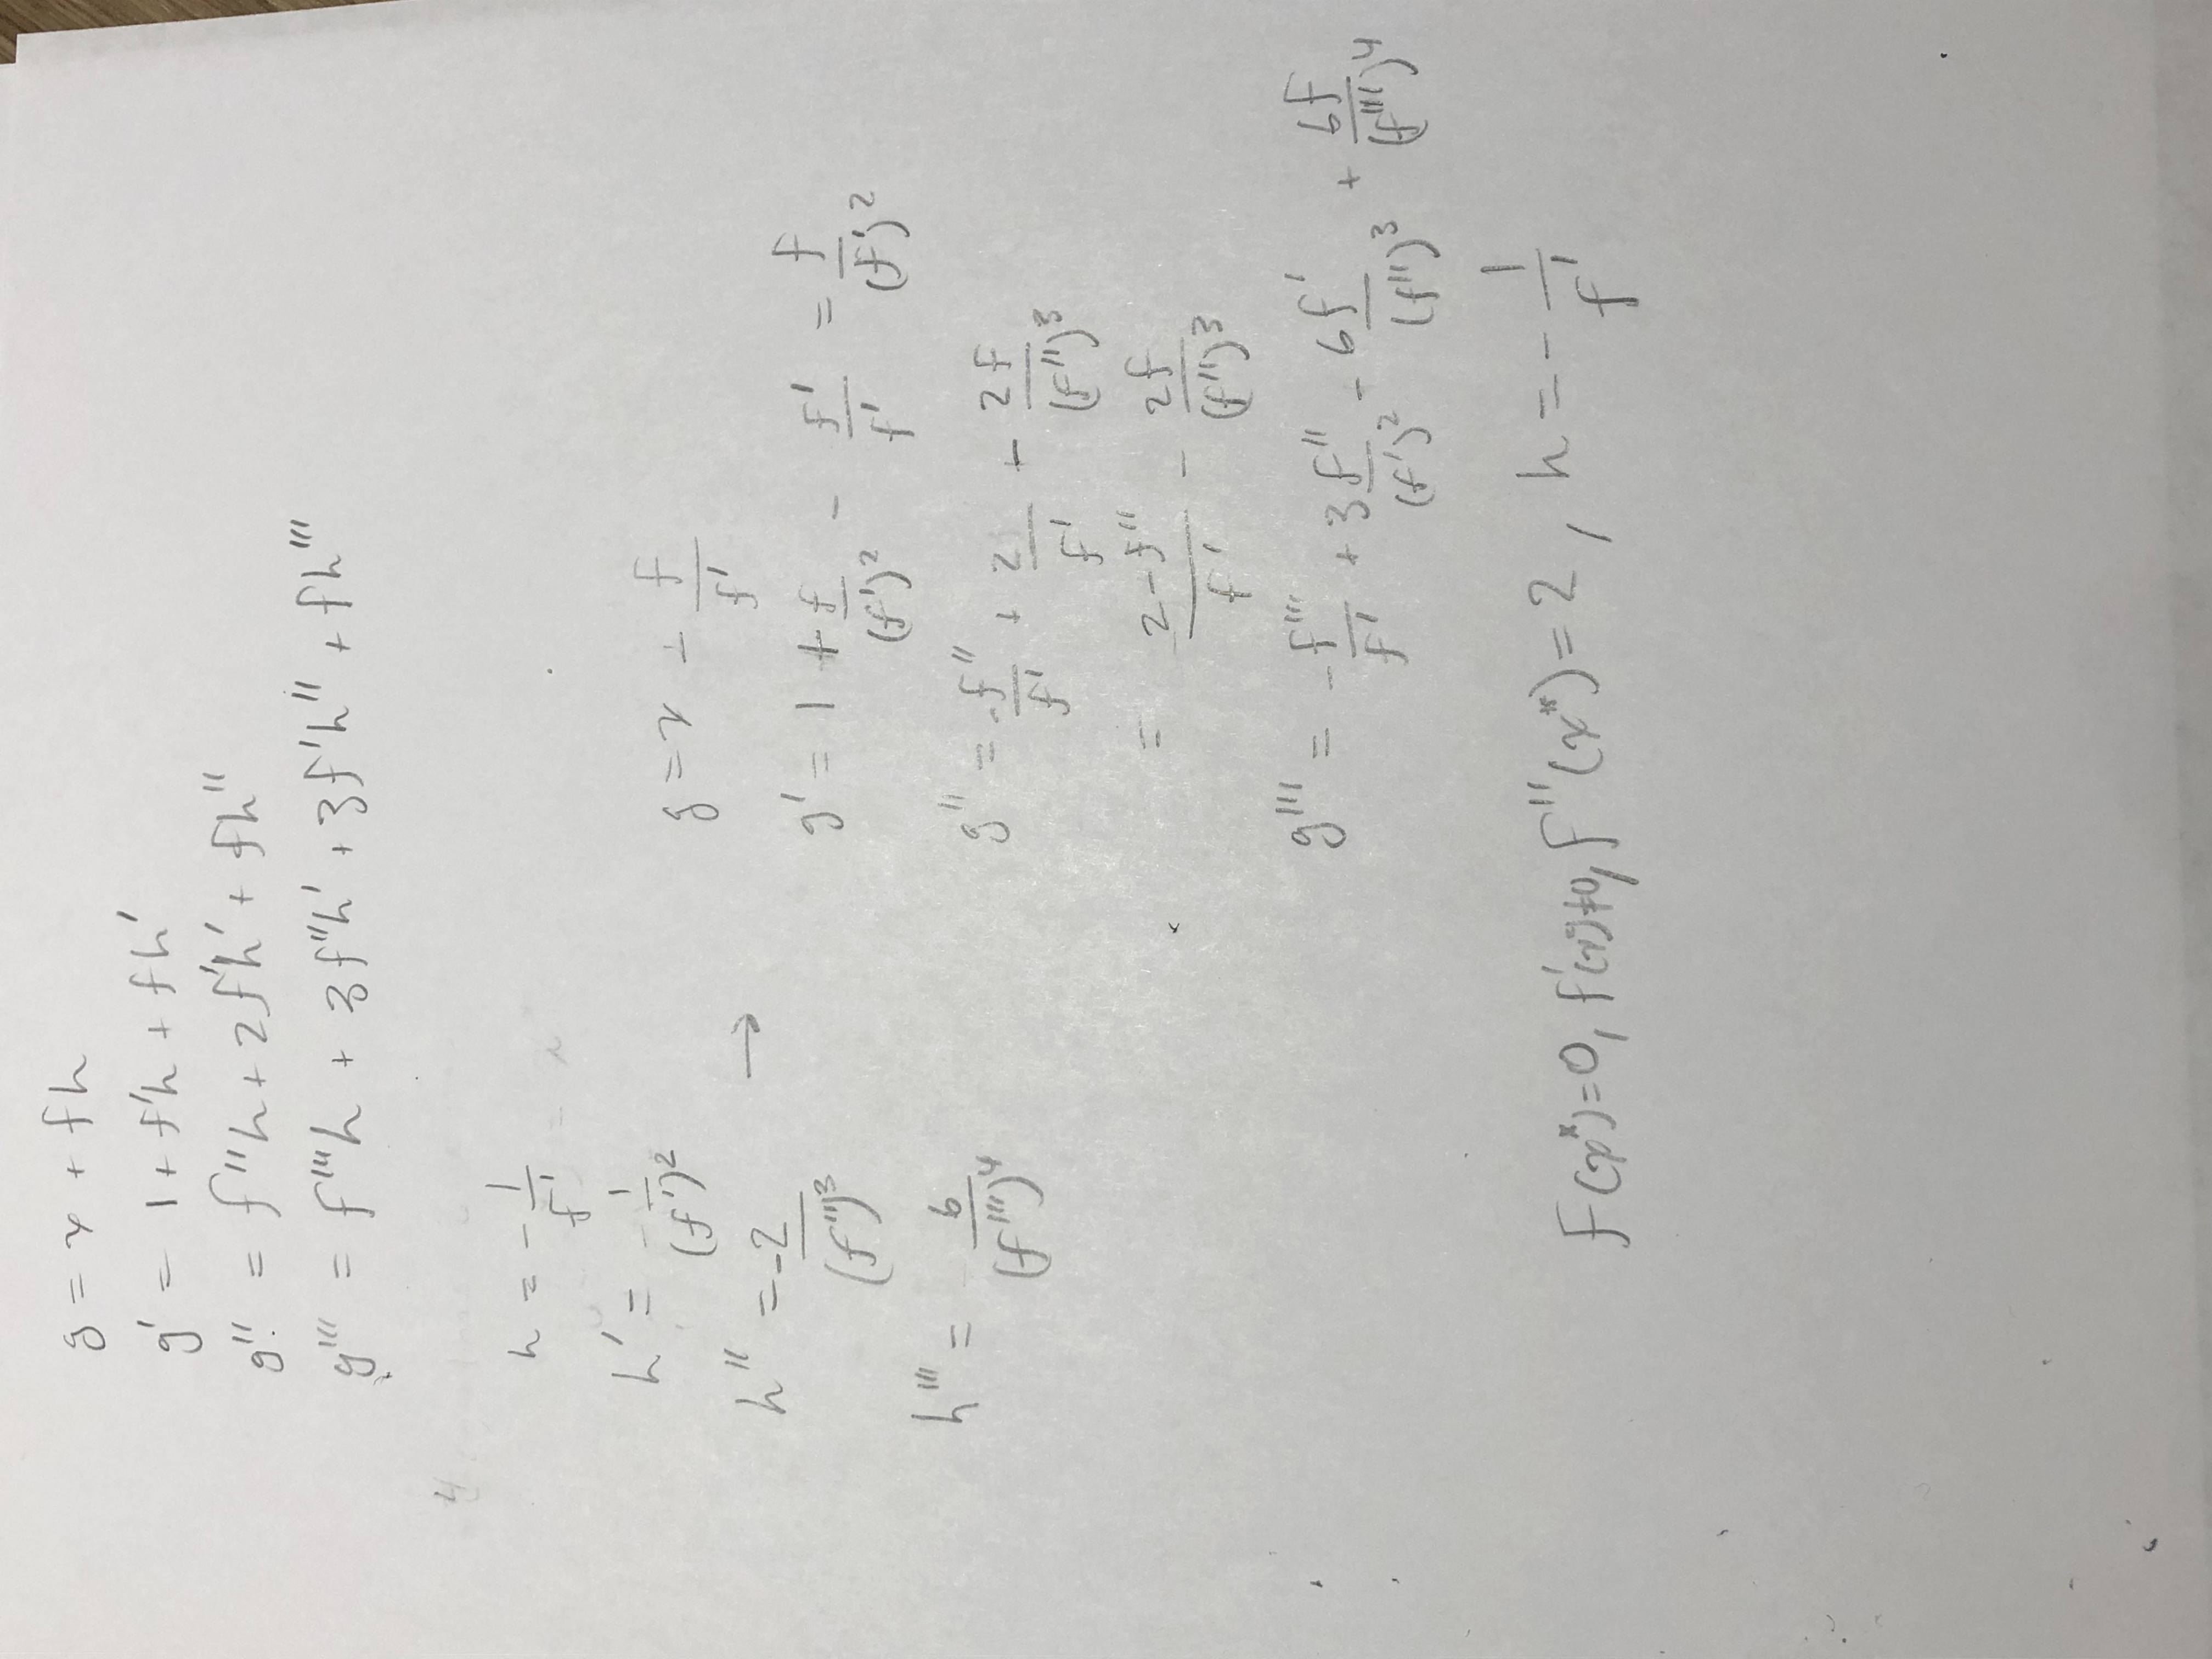 g = x + fh
g' = 1 + f'h + fh'
g'' = f''h + 2f'h' + fh''
g''' = f'''h + 3f''h' + 3f'h'' + fh'''
4
h = - 1/f'
h' = 1/(f')^2
h'' = -2/(f'')^3
h''' = 6/(f''')^4
→
g = x - f/f'
g' = 1 + f/(f')^2 - f'/f' = f/(f')^2
g'' = -f''/f' + 2/f' - 2f/(f'')^3
= (2-f'')/f' - 2f/(f'')^3
g''' = -f'''/f' + 3f''/(f')^2 - 6f'/(f'')^3 + 6f/(f''')^4
f(x*)=0, f'(x*)≠0, f''(x*)=2, h = - 1/f'